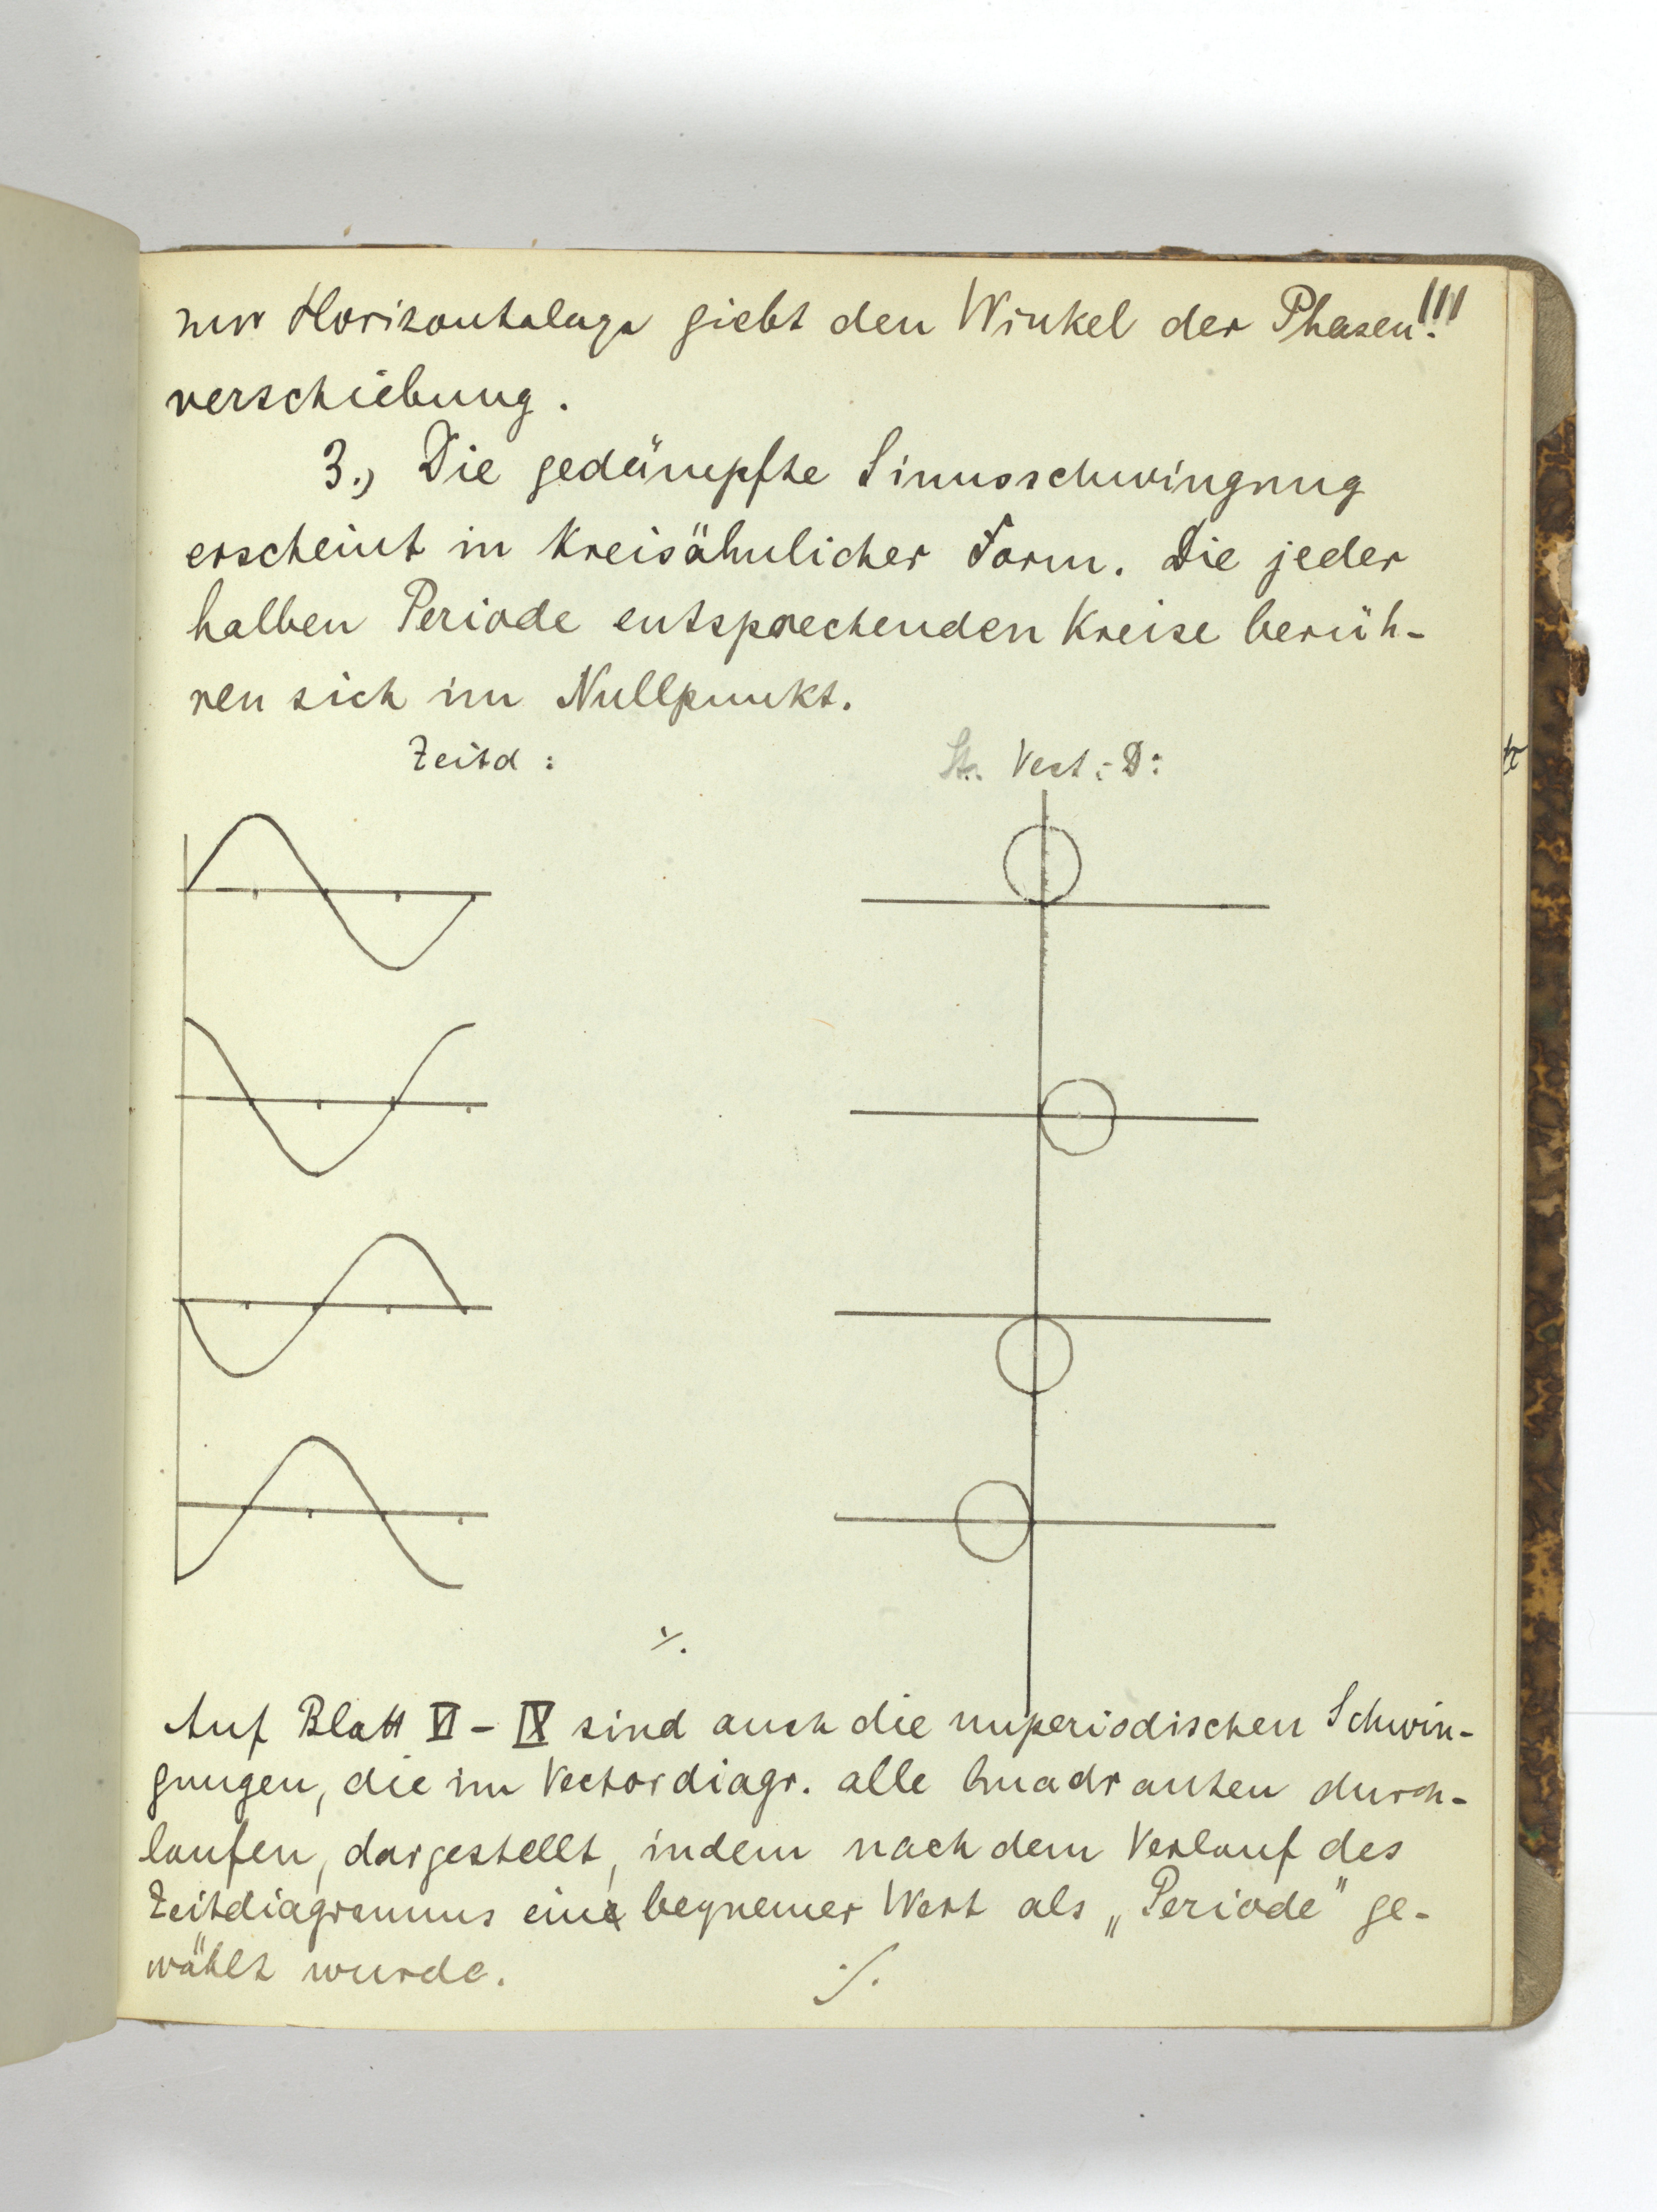 zur Horizontalage giebt den Winkel der Phasen!!!
verschiebung.
3.) Die gedämpfte Sinusschwingung
erscheint in Kreisähnlicher Form. Die jeder
halben Periode entsprechenden Kreise berüh-
ren sich im Nullpunkt.
Zeitd :
Vect.-D:
Auf Blatt VI - IX sind auch die unperiodischen Schwin-
gungen, die im Vectordiagr. alle Quadranten durch-
laufen, dargestellt, indem nach dem Verlauf des
Zeitdiagramms ein bequemer Wert als „Periode" ge-
wählt wurde.
./.